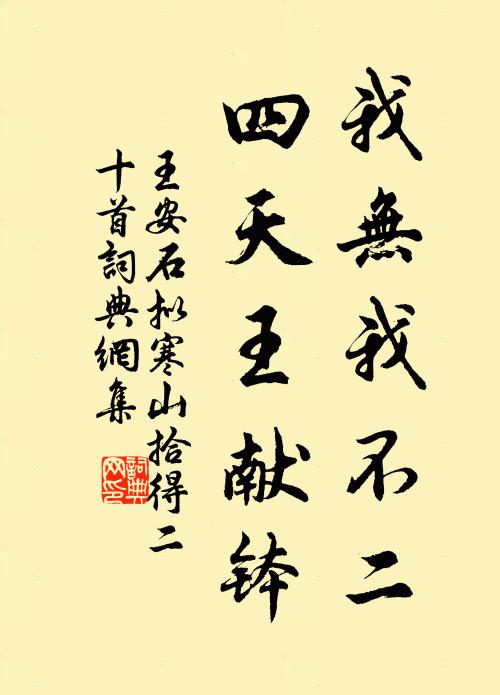 我無我不二
四天王献钵
王安石拟寒山拾得二
十首詞典網集
詞典
网印